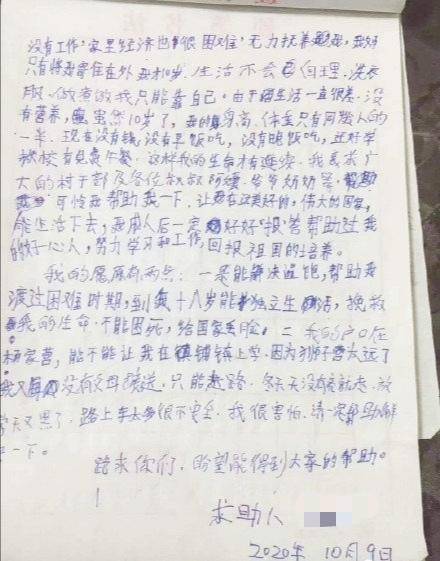 没有工作,家里经济也很困难,无力抚养我,我好
只有将我寄住在外,我才10岁,生活不会自理,洗衣
服,做者做我只能靠自己。由于生活一直很差,没
有营养,虽然10岁了,我的身高,体重只有同龄人的
一半。现在没有钱,没有早饭吃,没有晚饭吃,还好学
校有免费午餐,这样我的生命才有延续。我恳求广
大的村干部及各位叔叔阿姨、爷爷奶奶等
可怜我帮助我一下,让我在这美好的,伟大的国家,
能生活下去,我成人后一定好好报答帮助过我
的好心人,努力学习和工作,回报祖国的培养。
我的愿原有两点:一是能解决温饱,帮助我
渡过困难时期,到我十八岁能独立生活,挽救
我的生命。不能困死,给国家丢脸,二我的户口在
杨家营,能不能让我在镇上学,因为狮子营太远了
我又没有父母接送,只能走路,冬天天没有亮就走,放
学天又黑了,路上车太多很不安全,我很害怕,请一定帮助解
一下。
跪求你们,盼望能得到大家的帮助。
求助人
2020年10月9日